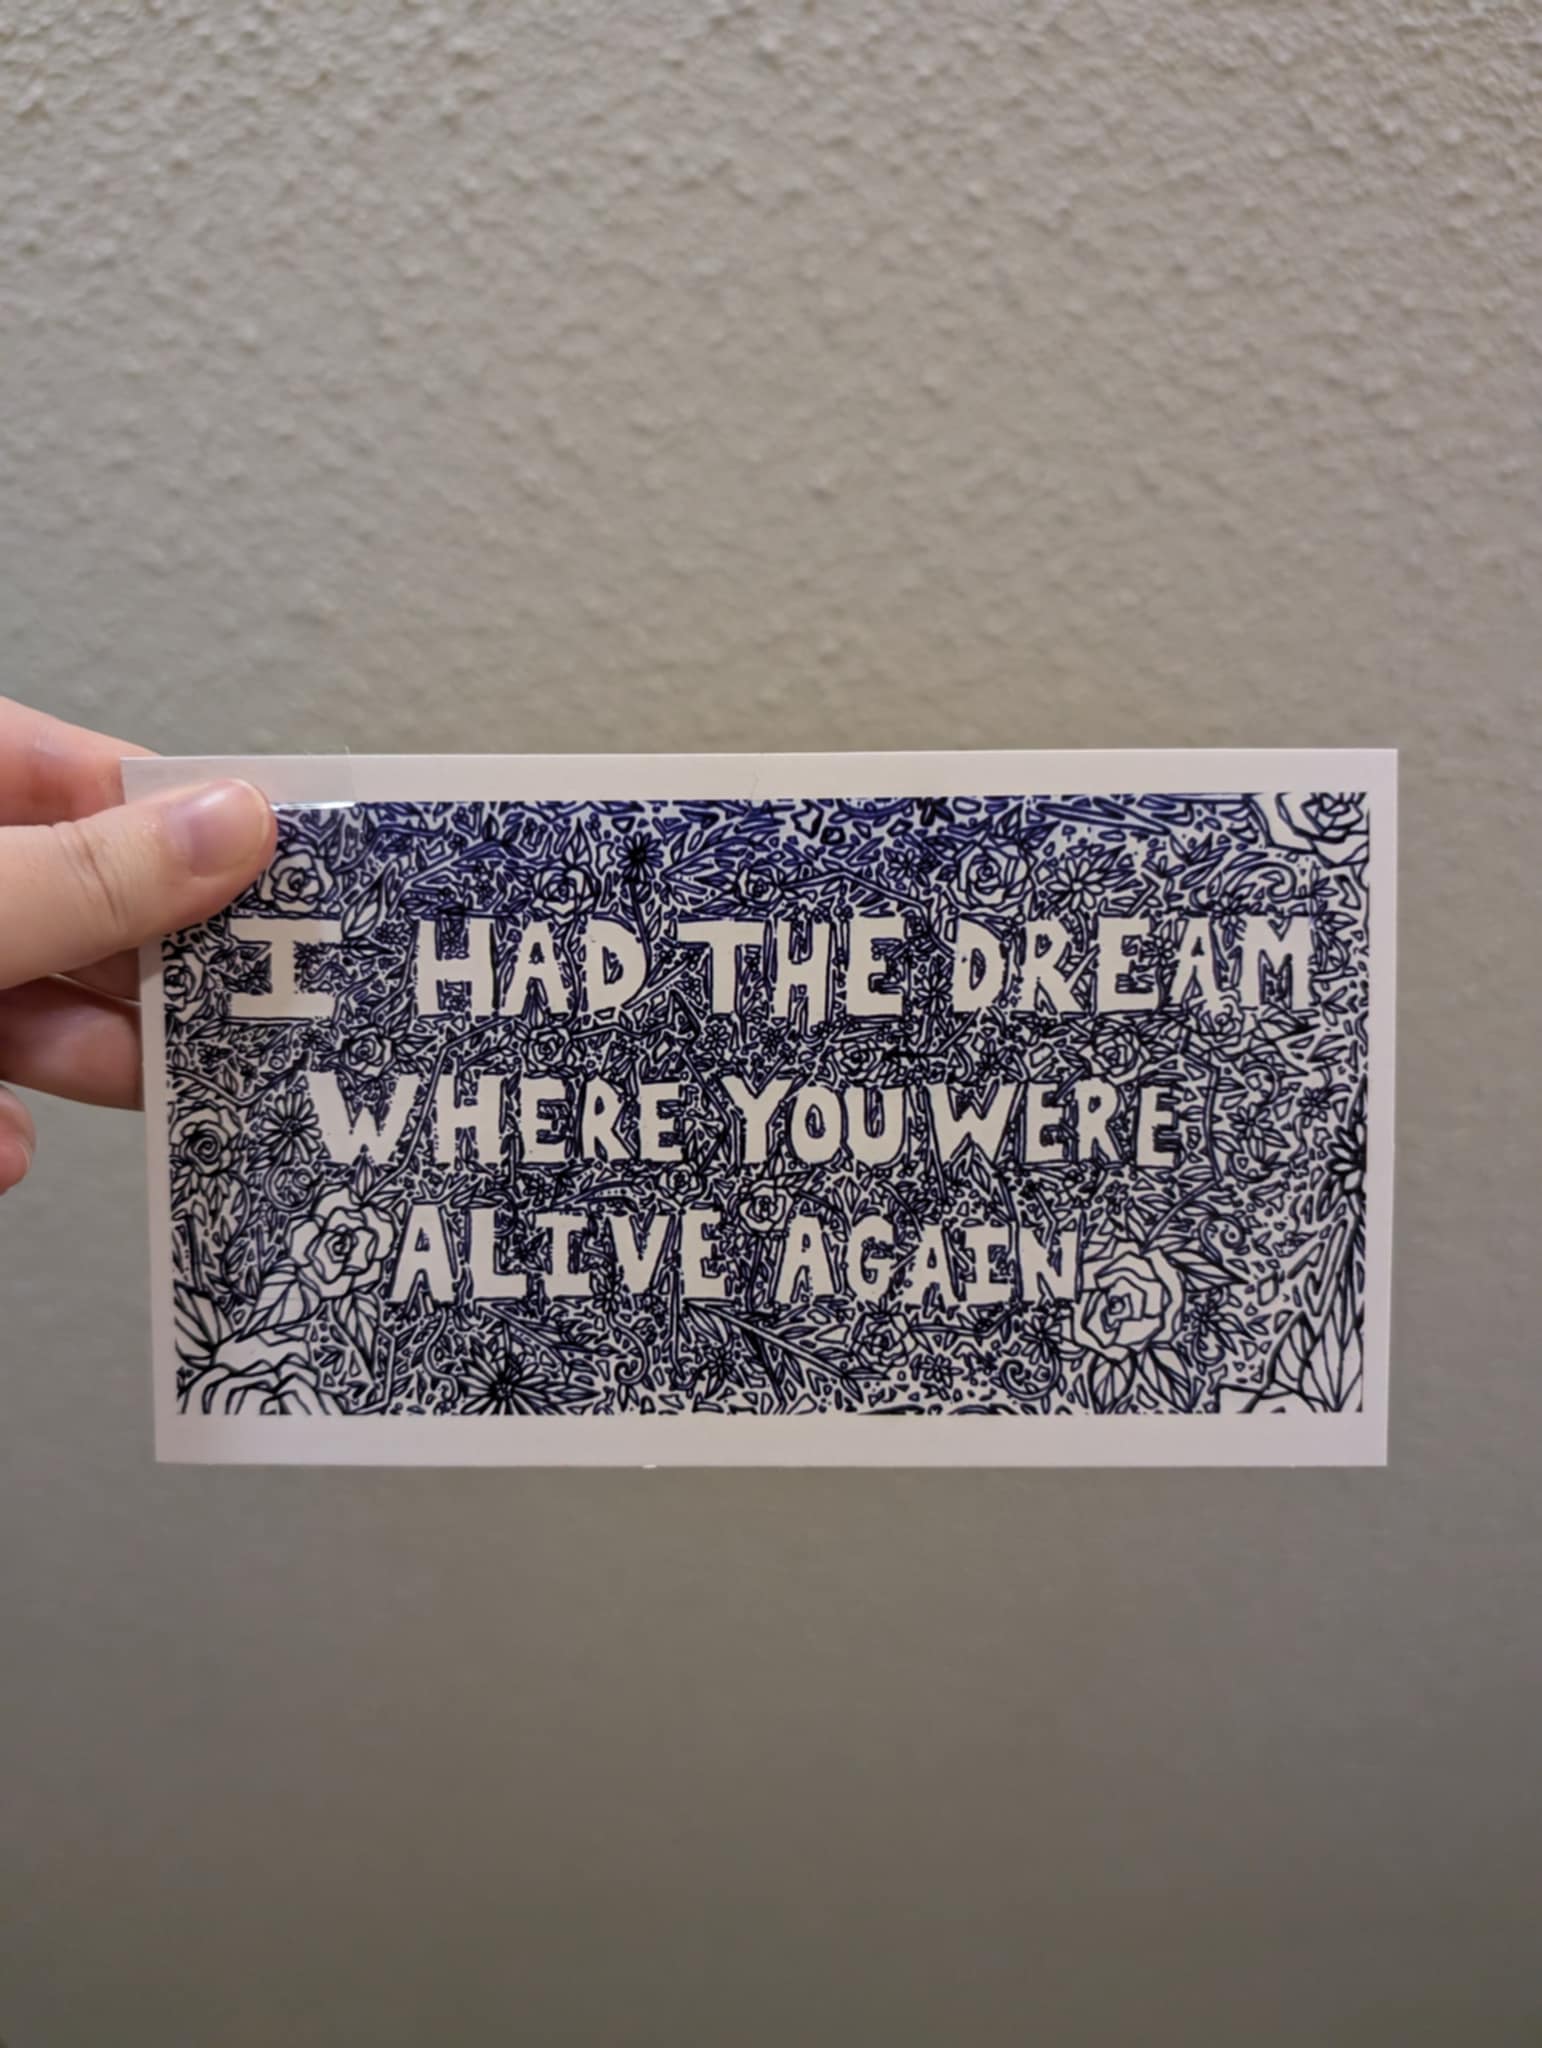 I HAD THE DREAM
WHERE YOU WERE
ALIVE AGAIN